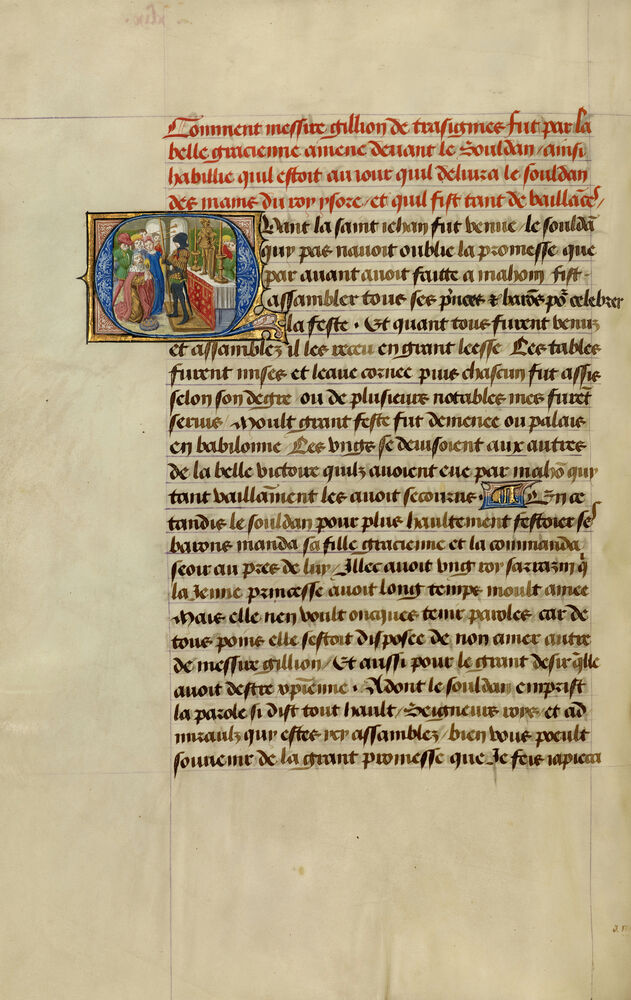 Comment messire gillion de trasignies fut par la
belle gracienne amene deuant le Souldan / ainsi
habillie quil estoit au iour quil deliura le souldan
des mains du roy ysore / et quil fist tant de vaillāce /
Quant la saint iehan fut venue / le souldā
quy pas nauoit oublie la promesse que
par auant auoit faitte a mahom fist
assambler tous ses p̄nces & barōs po᷑ celebrer
la feste . Et quant tous furent venus
et assamblez il les receu en grant leesse Les tables
furent mises et leaue cornee puis chascun fut assis
selon son degre ou de plusieurs notables mes furēt
seruis / Moult grant feste fut demenee ou palais
en babilonne / Les vngs se deuisoient aux autres
de la belle victoire quilz auoient eue par mahō quy
tant vaillāment les auoit secourus . En ce
tandis le souldan pour plus haultement festoier ses
barons manda sa fille gracienne et la commanda
seoir au pres de luy / Illec auoit vng roy sarrazin q̄
la Jeune princesse auoit long temps moult amee
Mais elle nen voult oncques tenir paroles car de
tous poins elle sestoit disposee de non amer autre
de messire gillion / Et aussi pour le grant desir q̄lle
auoit destre xp̄ienne . Adont le souldan emprist
la parole si dist tout hault / Seigneurs roys et ad
miraulz quy estes icy assamblez / bien vous poeult
souuenir de la grant promesse que Je feis iapieca